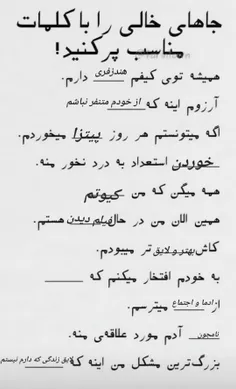 جاهای خالی را با کلمات
مناسب پر کنید!
همیشه توی کیفم هندزفری دارم.
آرزوم اینه که از خودم متنفر نباشم
اگه میتونستم هر روز پیتزا میخوردم.
خوردن استعداد به درد نخور منه.
همه میگن که من کیوتم
همین الان من در حال فیلم دیدن هستم.
کاش بهتر و لایق تر میبودم.
به خودم افتخار میکنم که ـــــــ
از ادما و اجتماع میترسم.
نامجون آدم مورد علاقه‌ی منه.
بزرگ‌ترین مشکل من اینه که لایق زندگی که دارم نیستم